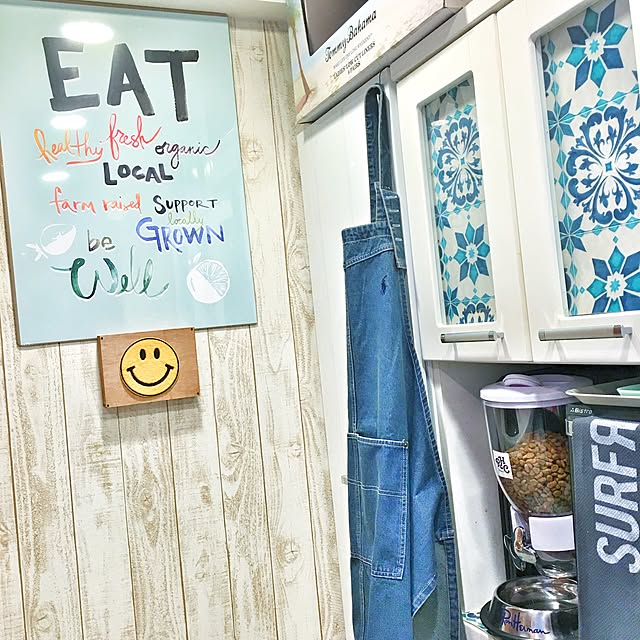 EAT
healthy fresh organic
LOCAL
farm raised SUPPORT
locally
be GROWN
Well
Tommy Bahama
Bistro
SURFR